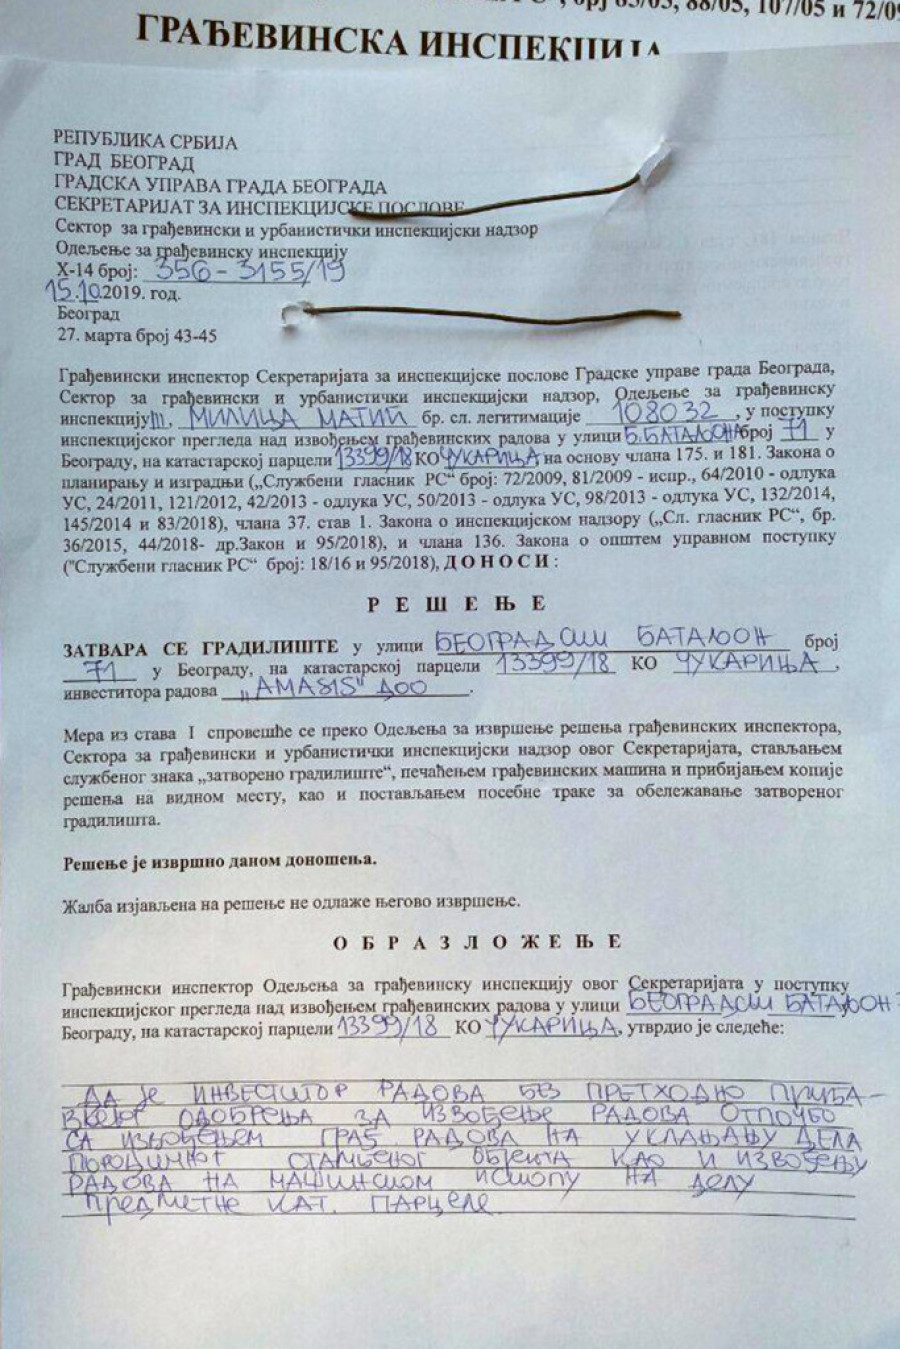 бр 65/03, 88/05, 107/05 и 72/09
ГРАЂЕВИНСКА ИНСПЕКЦИЈА
РЕПУБЛИКА СРБИЈА
ГРАД БЕОГРАД
ГРАДСКА УПРАВА ГРАДА БЕОГРАДА
СЕКРЕТАРИЈАТ ЗА ИНСПЕКЦИЈСКЕ ПОСЛОВЕ
Сектор за грађевински и урбанистички инспекцијски надзор
Одељење за грађевинску инспекцију
X-14 број: 356-3155/19
15.10.2019. год.
Београд
27. марта број 43-45
Грађевински инспектор Секретаријата за инспекцијске послове Градске управе града Београда,
Сектор за грађевински и урбанистички инспекцијски надзор, Одељење за грађевинску
инспекцију III, МИЛИЦА МАТИЋ бр. сл. легитимације 108032, у поступку
инспекцијског прегледа над извођењем грађевинских радова у улици Б.БАТАЉОНА број 71 у
Београду, на катастарској парцели 13399/18 КО ЧУКАРИЦА, на основу члана 175. и 181. Закона о
планирању и изградњи („Службени гласник РС“ број: 72/2009, 81/2009 - испр., 64/2010 - одлука
УС, 24/2011, 121/2012, 42/2013 - одлука УС, 50/2013 - одлука УС, 98/2013 - одлука УС, 132/2014,
145/2014 и 83/2018), члана 37. став 1. Закона о инспекцијском надзору („Сл. гласник РС“, бр.
36/2015, 44/2018- др.Закон и 95/2018), и члана 136. Закона о општем управном поступку
("Службени гласник РС“ број: 18/16 и 95/2018), Д О Н О С И :
Р Е Ш Е Њ Е
ЗАТВАРА СЕ ГРАДИЛИШТЕ у улици БЕОГРАДСКИ БАТАЉОН број
71 у Београду, на катастарској парцели 13399/18 КО ЧУКАРИЦА,
инвеститора радова „AMASIS" ДОО.
Мера из става I спровешће се преко Одељења за извршење решења грађевинских инспектора,
Сектора за грађевински и урбанистички инспекцијски надзор овог Секретаријата, стављањем
службеног знака „затворено градилиште“, печаћењем грађевинских машина и прибијањем копије
решења на видном месту, као и постављањем посебне траке за обележавање затвореног
градилишта.
Решење је извршно даном доношења.
Жалба изјављена на решење не одлаже његово извршење.
О Б Р А З Л О Ж Е Њ Е
Грађевински инспектор Одељења за грађевинску инспекцију овог Секретаријата у поступку
инспекцијског прегледа над извођењем грађевинских радова у улици БЕОГРАДСКИ БАТАЉОН у
Београду, на катастарској парцели 13399/18 КО ЧУКАРИЦА, утврдио је следеће:
ДА ЈЕ ИНВЕСТИТОР РАДОВА БЕЗ ПРЕТХОДНО ПРИБА-
ВЉЕНОГ ОДОБРЕЊА ЗА ИЗВОЂЕЊЕ РАДОВА ОТПОЧЕО
СА ИЗВОЂЕЊЕМ ГРАЂ РАДОВА НА УКЛАЊАЊУ ДЕЛА
ПОРОДИЧНОГ СТАМБЕНОГ ОБЈЕКТА КАО И ИЗВОЂЕЊУ
РАДОВА НА МАШИНСКОМ ИСКОПУ НА ДЕЛУ
ПРЕДМЕТНЕ КАТ. ПАРЦЕЛЕ